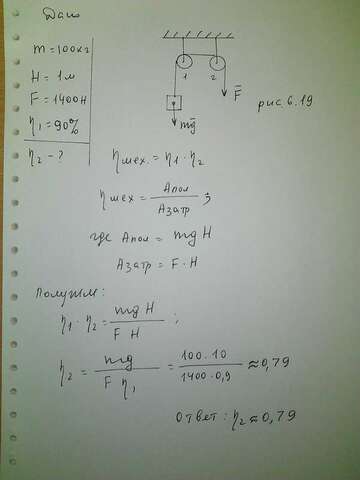 Дано
m = 100кг
H = 1м
F = 1400Н
η₁ = 90%
η₂ - ?
1 2
F̅
mg̅
рис. 6.19
ηмех. = η₁ · η₂
ηмех = Aпол / Aзатр ;
где Апол = mg H
Азатр = F · H
Получим:
η₁ · η₂ = mg H / F H ;
η₂ = mg / F η₁ = 100 · 10 / 1400 · 0,9 ≈ 0,79
Ответ: η₂ ≈ 0,79